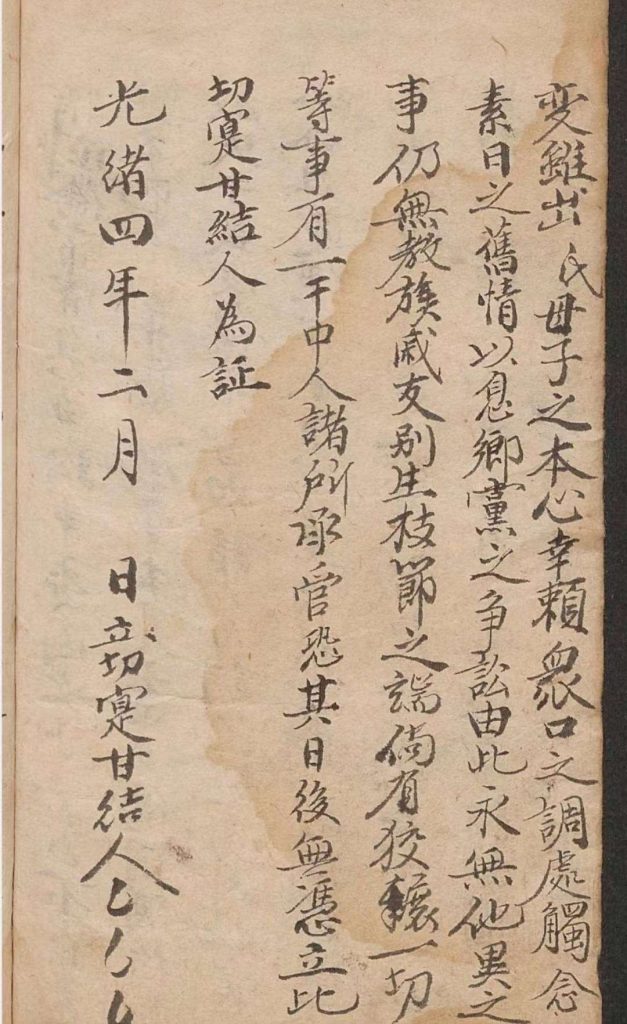 变雖出 氏母子之本心幸賴衆口之調處觸念
素日之舊情以息鄉黨之争訟由此永無他異之
事仍無教族戚友别生枝節之端倘有狡轅一切
等事有一干中人諸所承管恐其日後無憑立此
切寔甘結人為証
光緒四年二月 日立切寔甘結人